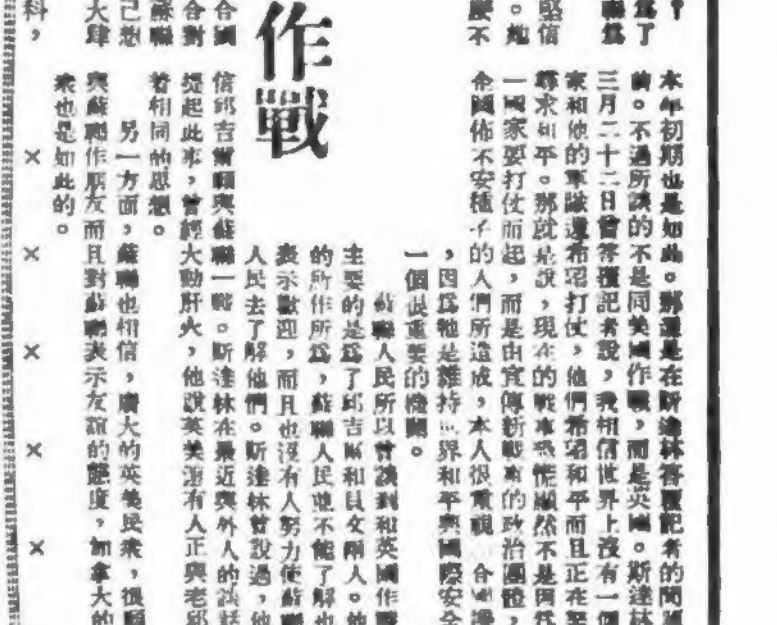 了
聯為
堅信
。他
不
本年初期也是如此。那還是在斯達林答覆記者的問題
前。不過所談的不是同美國作戰,而是英國。斯達林
三月二十二日曾答覆記者說,我相信世界上沒有一個
家和他的軍隊還希望打仗,他們希望和平而且正在
尋求和平。那就是說,現在的戰事恐慌顯然不是因為
一國家要打仗而起,而是由宣傳新戰事的政治團體,
佈不安種子的人們所造成,本人很重視
,因為牠是維持世界和平與國際安全
一個很重要的機關。
蘇聯人民所以曾談到和英國作戰
主要的是為了邱吉爾和貝文兩人。他
的所作所為,蘇聯人民並不能了解也
表示歡迎,而且也沒有人努力使蘇聯
人民去了解他們。斯達林曾說過,他
作戰
合國
信邱吉爾願與蘇聯一戰。斯達林在最近與外人的談話
合對
提起此事,曾經大動肝火,他說英美還有人正與老邱
蘇聯
着相同的思想。
己想
另一方面,蘇聯也相信,廣大的英美民衆,很願
大肆
與蘇聯作朋友而且對蘇聯表示友誼的態度,加拿大的
衆也是如此的。
科,
× × × × ×